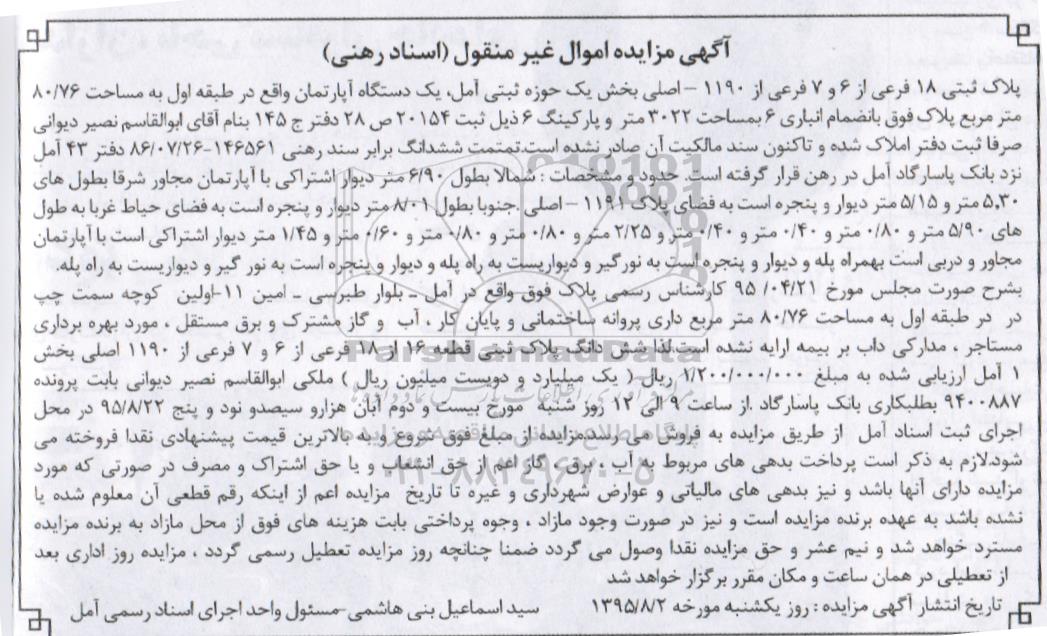 آگهی مزایده اموال غیر منقول (اسناد رهنی)
پلاک ثبتی ۱۸ فرعی از ۶ و ۷ فرعی از ۱۱۹۰ –اصلی بخش یک حوزه ثبتی آمل، یک دستگاه آپارتمان واقع در طبقه اول به مساحت ۸۰/۷۶
متر مربع پلاک فوق بانضمام انباری ۶ بمساحت ۳۰۲۲ متر و پارکینگ ۶ ذیل ثبت ۲۰۱۵۴ ص ۲۸ دفتر ج ۱۴۵ بنام آقای ابوالقاسم نصیر دیوانی
صرفا ثبت دفتر املاک شده و تاکنون سند مالکیت آن صادر نشده است.تمتمت ششدانگ برابر سند رهنی ۱۴۶۵۶۱-۸۶/۰۷/۲۶ دفتر ۴۳ آمل
نزد بانک پاسارگاد آمل در رهن قرار گرفته است. حدود و مشخصات : شمالا بطول ۶/۹۰ متر دیوار اشتراکی با آپارتمان مجاور شرقا بطول های
۵,۳۰ متر و ۵/۱۵ متر دیوار و پنجره است به فضای پلاک ۱۱۹۱ – اصلی .جنوبا بطول ۸/۰۱ متر دیوار و پنجره است به فضای حیاط غربا به طول
های ۵/۹۰ متر و ۰/۸۰ متر و ۰/۴۰ متر و ۰/۴۰ متر و ۲/۲۵ متر و ۰/۸۰ متر و ۰/۸۰ متر و ۰/۶۰ متر و ۱/۴۵ متر دیوار اشتراکی است با آپارتمان
مجاور و دربی است بهمراه پله و دیوار و پنجره است به نورگیر و دیواریست به راه پله و دیوار و پنجره است به نور گیر و دیواریست به راه پله.
بشرح صورت مجلس مورخ ۹۵/۰۴/۲۱ کارشناس رسمی پلاک فوق واقع در آمل ـ بلوار طبرسی ـ امین ۱۱-اولین کوچه سمت چپ
در در طبقه اول به مساحت ۸۰/۷۶ متر مربع داری پروانه ساختمانی و پایان کار ، آب و گاز مشترک و برق مستقل ، مورد بهره برداری
مستاجر ، مدارکی داب بر بیمه ارایه نشده است.لذا شش دانگ پلاک ثبتی قطعه ۱۶ از ۱۸ فرعی از ۶ و ۷ فرعی از ۱۱۹۰ اصلی بخش
۱ آمل ارزیابی شده به مبلغ ۱/۲۰۰/۰۰۰/۰۰۰ ریال ( یک میلیارد و دویست میلیون ریال ) ملکی ابوالقاسم نصیر دیوانی بابت پرونده
۹۴۰۰۸۸۷ بطلبکاری بانک پاسارگاد .از ساعت ۹ الی ۱۲ روز شنبه مورخ بیست و دوم آبان هزارو سیصدو نود و پنج ۹۵/۸/۲۲ در محل
اجرای ثبت اسناد آمل از طریق مزایده به فروش می رسد.مزایده از مبلغ فوق شروع و به بالاترین قیمت پیشنهادی نقدا فروخته می
شود.لازم به ذکر است پرداخت بدهی های مربوط به آب ، برق ، گاز اعم از حق انشعاب و یا حق اشتراک و مصرف در صورتی که مورد
مزایده دارای آنها باشد و نیز بدهی های مالیاتی و عوارض شهرداری و غیره تا تاریخ مزایده اعم از اینکه رقم قطعی آن معلوم شده یا
نشده باشد به عهده برنده مزایده است و نیز در صورت وجود مازاد ، وجوه پرداختی بابت هزینه های فوق از محل مازاد به برنده مزایده
مسترد خواهد شد و نیم عشر و حق مزایده نقدا وصول می گردد ضمنا چنانچه روز مزایده تعطیل رسمی گردد ، مزایده روز اداری بعد
از تعطیلی در همان ساعت و مکان مقرر برگزار خواهد شد
تاریخ انتشار آگهی مزایده : روز یکشنبه مورخه ۱۳۹۵/۸/۲ سید اسماعیل بنی هاشمی-مسئول واحد اجرای اسناد رسمی آمل
ParsNamadData
۰۲۱-۸۸۳۴۹۶۷۰-۵